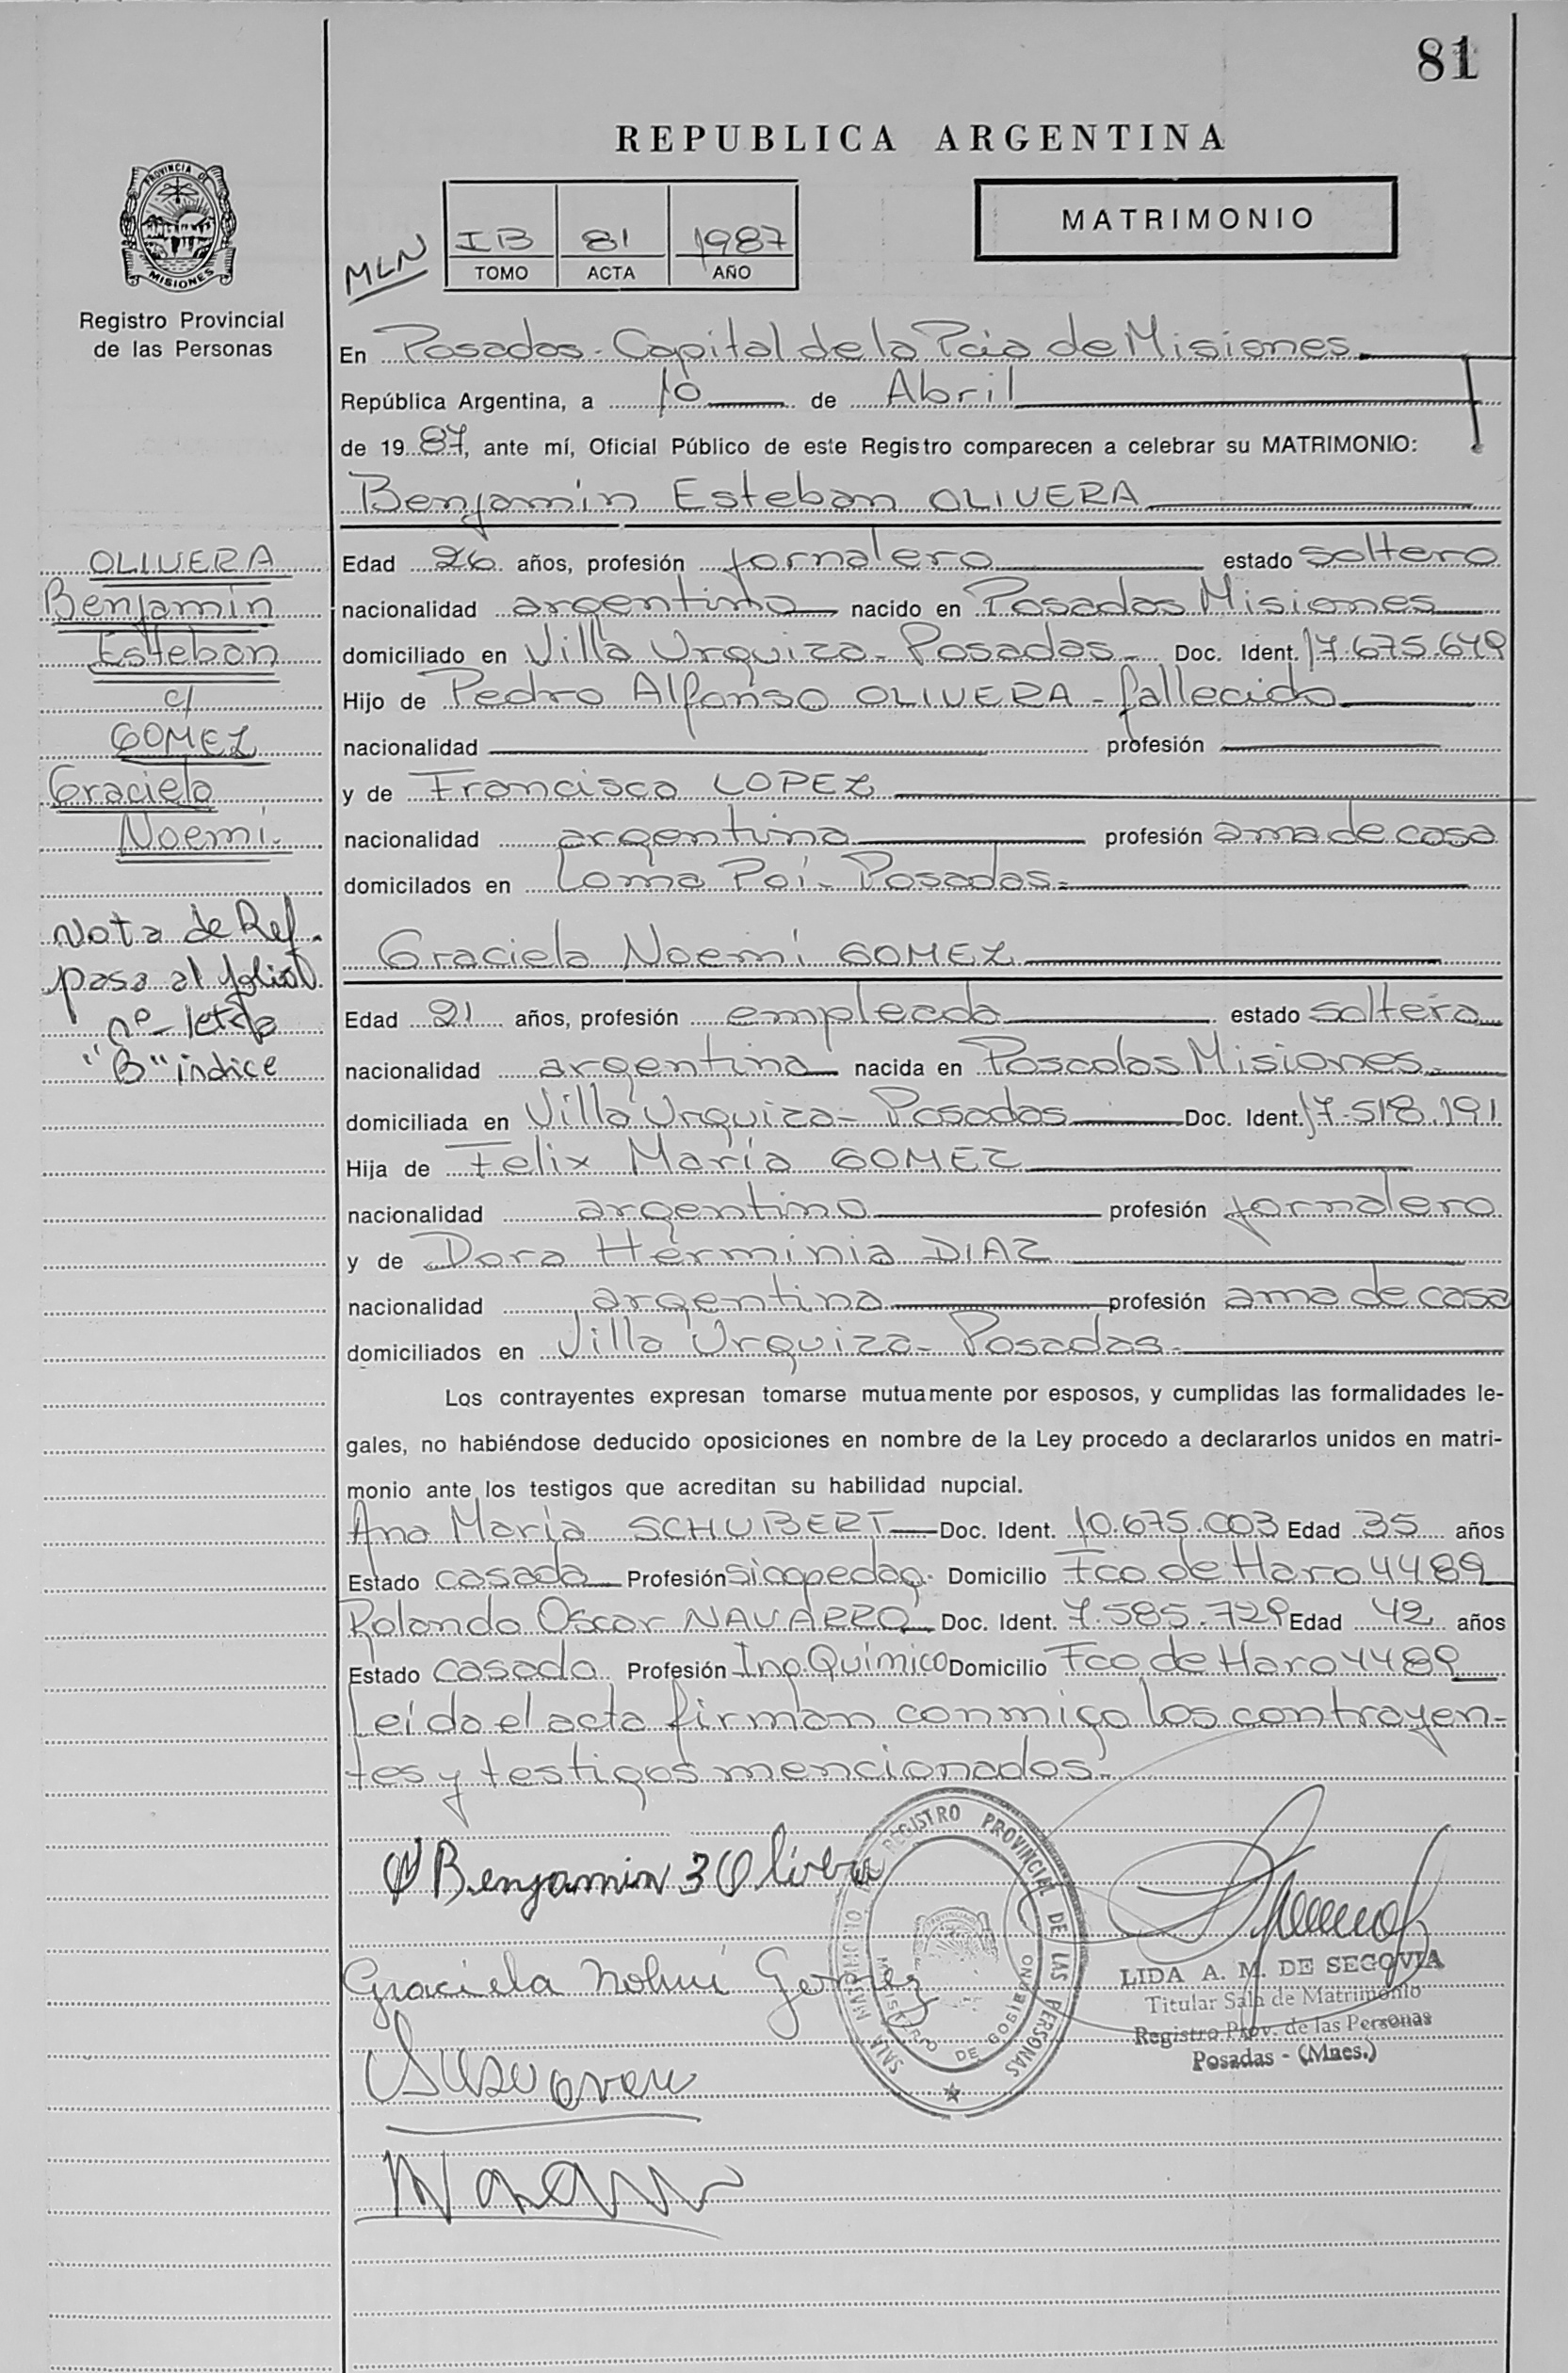 81
REPUBLICA ARGENTINA
PROVINCIA DE
MISIONES
Registro Provincial
de las Personas
MLN
IB 81 1987
TOMO ACTA AÑO
MATRIMONIO
En Posadas-Capital de la Pcia de Misiones
República Argentina, a 10 de Abril
de 1987, ante mí, Oficial Público de este Registro comparecen a celebrar su MATRIMONIO:
Benjamin Esteban OLIVERA
OLIVERA
Benjamin
Esteban
c/
GOMEZ
Graciela
Noemi.
Nota de Ref.
pasa al
nº- letra
"B" indice
Edad 26 años, profesión jornalero estado soltero
nacionalidad argentino nacido en Posadas Misiones
domiciliado en Villa Urquiza-Posadas- Doc. Ident. 17.675.679
Hijo de Pedro Alfonso OLIVERA-fallecido
nacionalidad profesión
y de Francisca LOPEZ
nacionalidad argentina profesión ama de casa
domicilados en Loma Poi-Posadas-
Graciela Noemi GOMEZ
Edad 21 años, profesión empleada estado soltera
nacionalidad argentina nacida en Posadas Misiones
domiciliada en Villa Urquiza-Posadas Doc. Ident. 17.518.191
Hija de Felix María GOMEZ
nacionalidad argentino profesión jornalero
y de Dora Herminia DIAZ
nacionalidad argentina profesión ama de casa
domiciliados en Villa Urquiza-Posadas-
Los contrayentes expresan tomarse mutuamente por esposos, y cumplidas las formalidades le-
gales, no habiéndose deducido oposiciones en nombre de la Ley procedo a declararlos unidos en matri-
monio ante los testigos que acreditan su habilidad nupcial.
Ana María SCHUBERT Doc. Ident. 10.675.003 Edad 35 años
Estado casada Profesión sicopedag. Domicilio Fco de Haro 4489
Rolando Oscar NAVARRO Doc. Ident. 7.585.729 Edad 42 años
Estado casado Profesión Ing. Químico Domicilio Fco de Haro 4489
Leída el acta firman conmigo los contrayen-
tes y testigos mencionados-
Benjamin Olivera
Graciela Gomez
REGISTRO PROVINCIAL DE LAS PERSONAS
MINISTERIO DE GOBIERNO
LIDA A. M. DE SEGOVIA
Titular Sala de Matrimonio
Registro Prov. de las Personas
Posadas - (Mnes.)